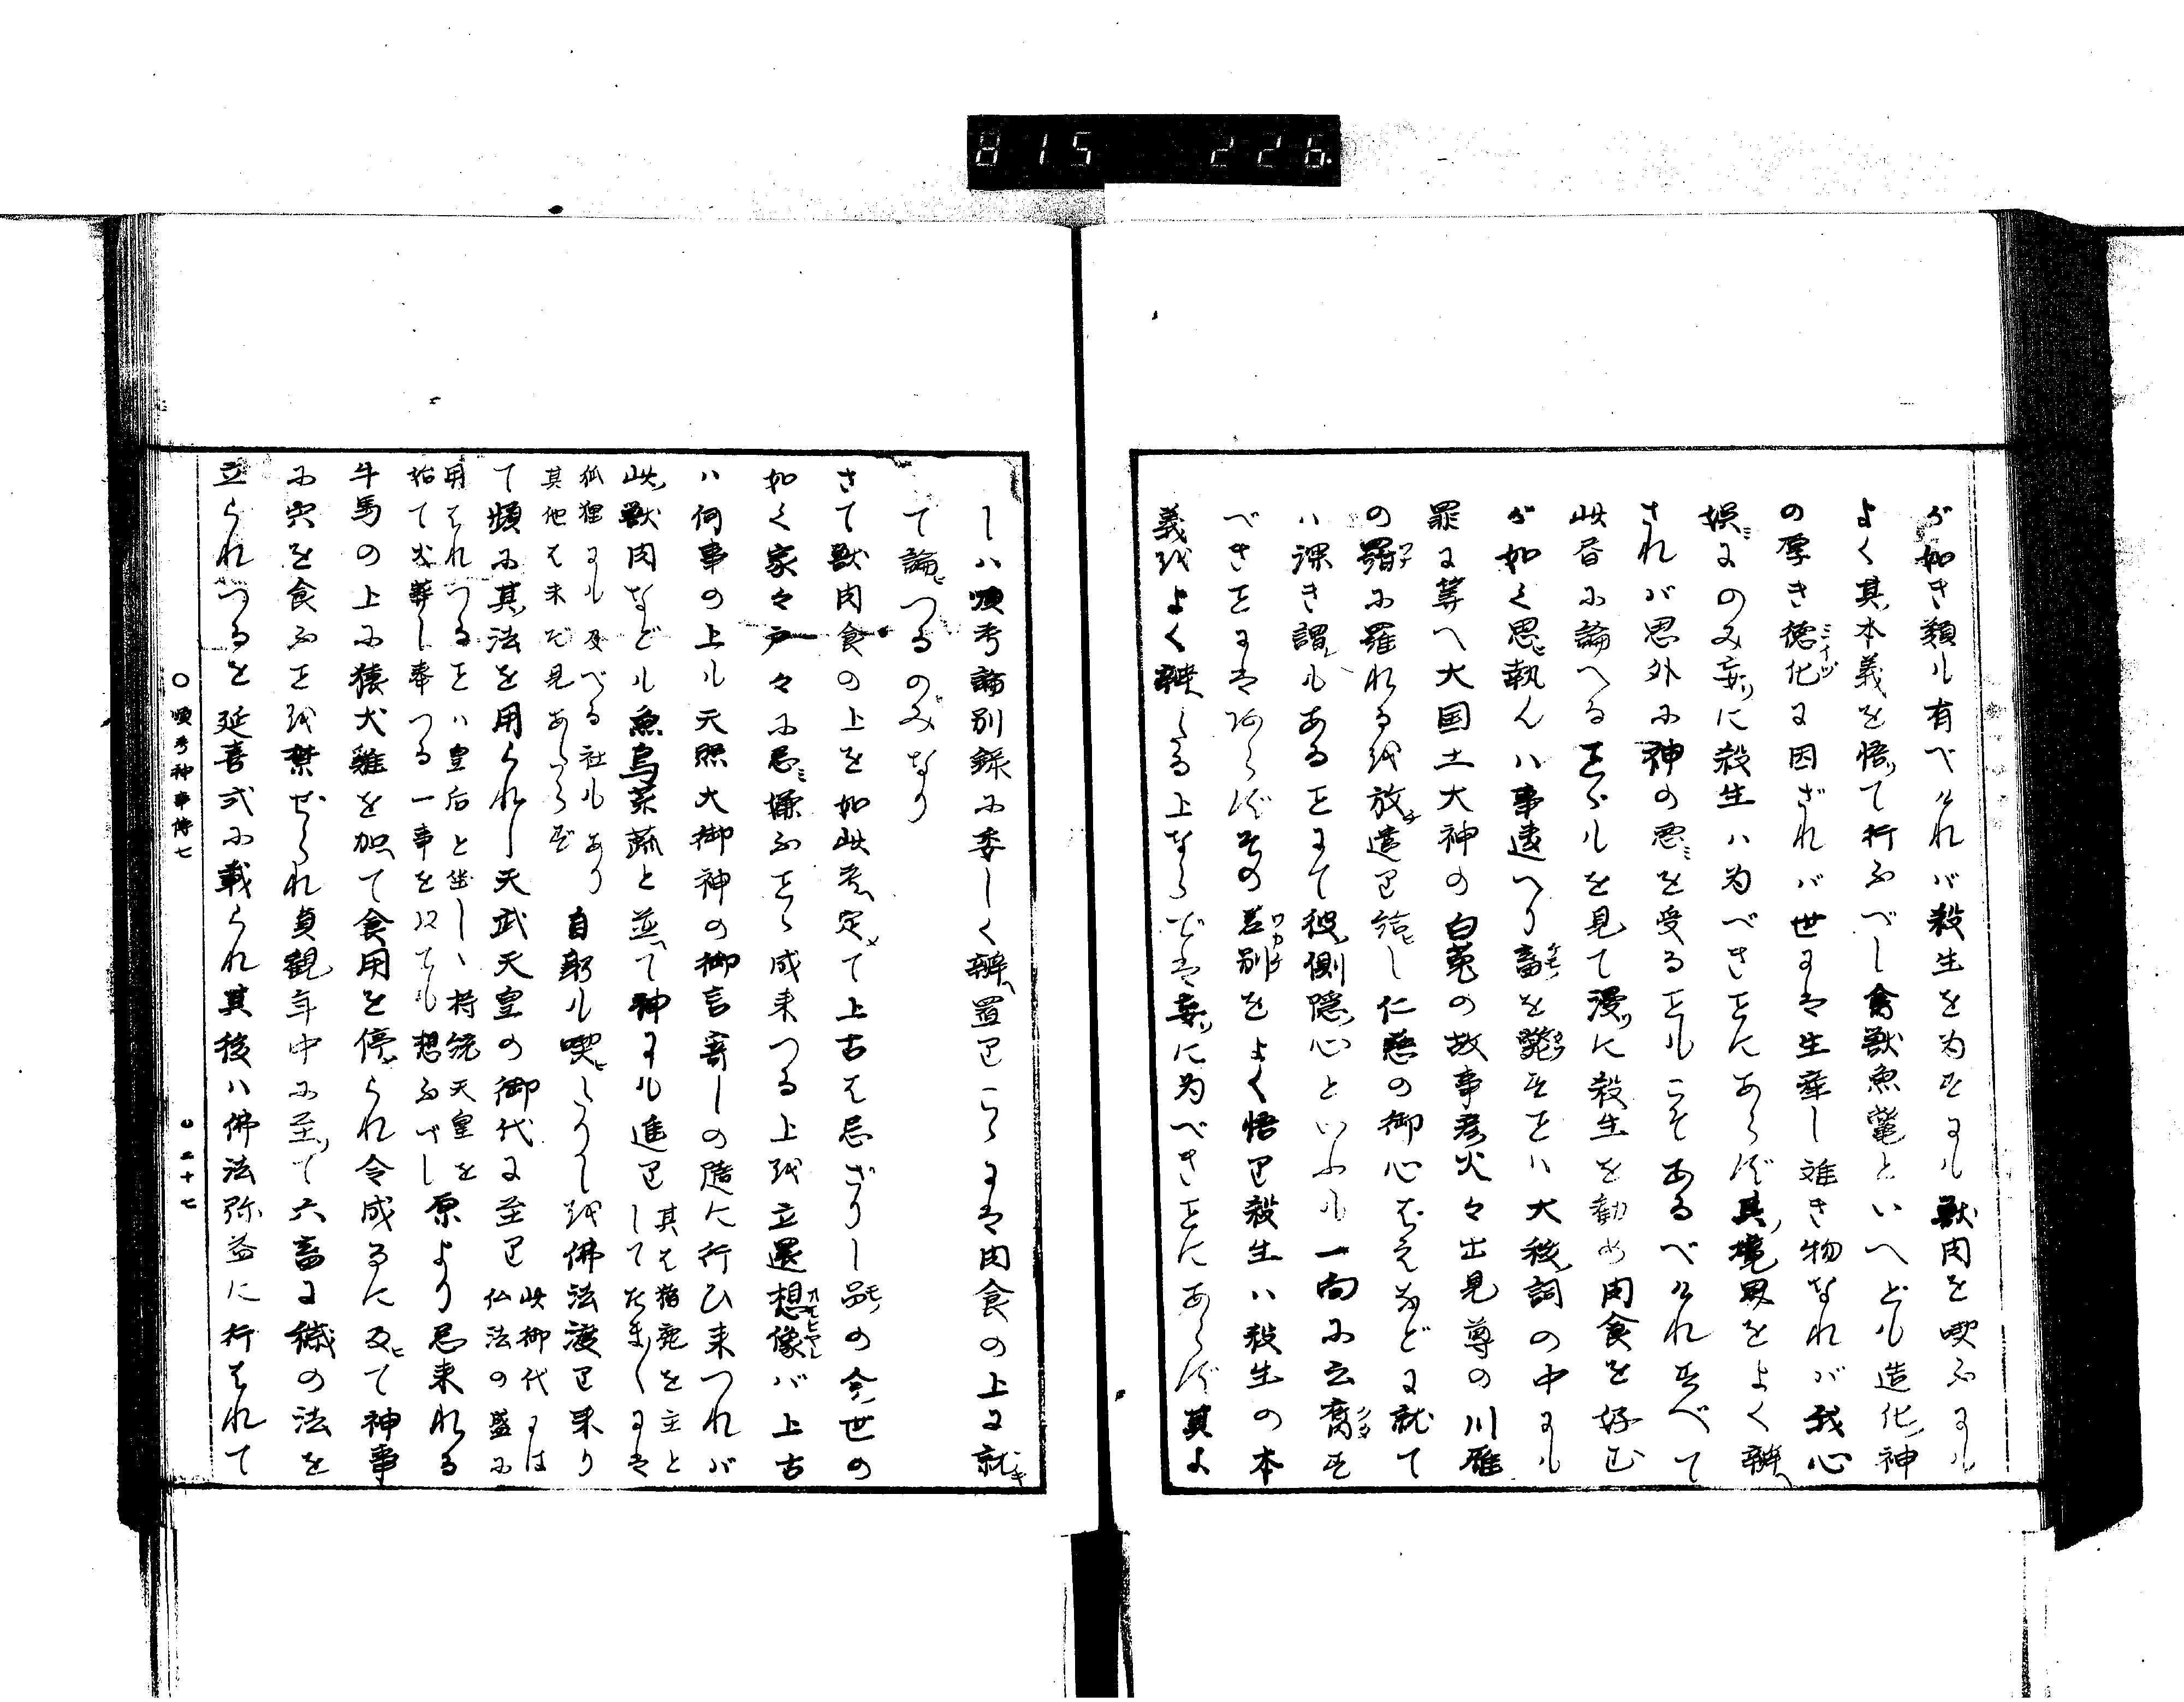 815 226.
が如き類も有べけれバ殺生を為すにも獣肉を喫ふにも
よく其本義を悟て行ふべし禽獣魚鼈といへども造化神
の厚き徳化に因ざれバ世にハ生産し難き物なれバ我心
娯にのみ妄に殺生ハ為べきことにあらず其境界をよく辨へ
されバ思外に神の悪を受ることもこそあるべけれすべて
此旨に論へることゞもを見て漫に殺生を勧め肉食を好む
が如く思執んハ事違へり畜を斃すことハ大祓詞の中にも
罪に算へ大国主大神の白菟の故事彦火々出見尊の川雁
の羂に羅れるを放遣り給ひし仁慈の御心ばえなどに就て
ハ深き謂もあることにて彼側隠心といふも一向に云腐す
べきことにはあらずその差別をよく悟り殺生ハ殺生の本
義をよく辨たる上ならでは妄に為べきことにあらず其よ
しハ順考論別録に委しく辨へ置りこゝには肉食の上に就
て論つるのみなり
さて獣肉食の上を如此考へ定て上古は忌ざりし品の今世の
如く家々戸々に忌嫌ふことゝ成来つる上を立還想像バ上古
ハ何事の上も天照大御神の御言寄しの随に行ひ来つれバ
此獣肉なども魚鳥菜蔬と並て神にも進り其は猪鹿を立と
してたま〳〵には
狐狸にも及べる社もあり
其他は未だ見あたらず自躬も喫ひたりしを佛法渡り来り
て頻に其法を用られし天武天皇の御代に至り此御代には
仏法の盛に
用はれつることハ皇后と坐しゝ持統天皇を
始て火葬し奉つる一事を以ても想ふべし原より忌来れる
牛馬の上に猿犬雞を加て食用を停られ令成るに及て神事
に宍を食ふことを禁ぜられ貞観年中に至て六畜に穢の法を
立られつるを延喜式に載られ其後ハ佛法弥益に行はれて
〇順考神事傳七
〇二十七